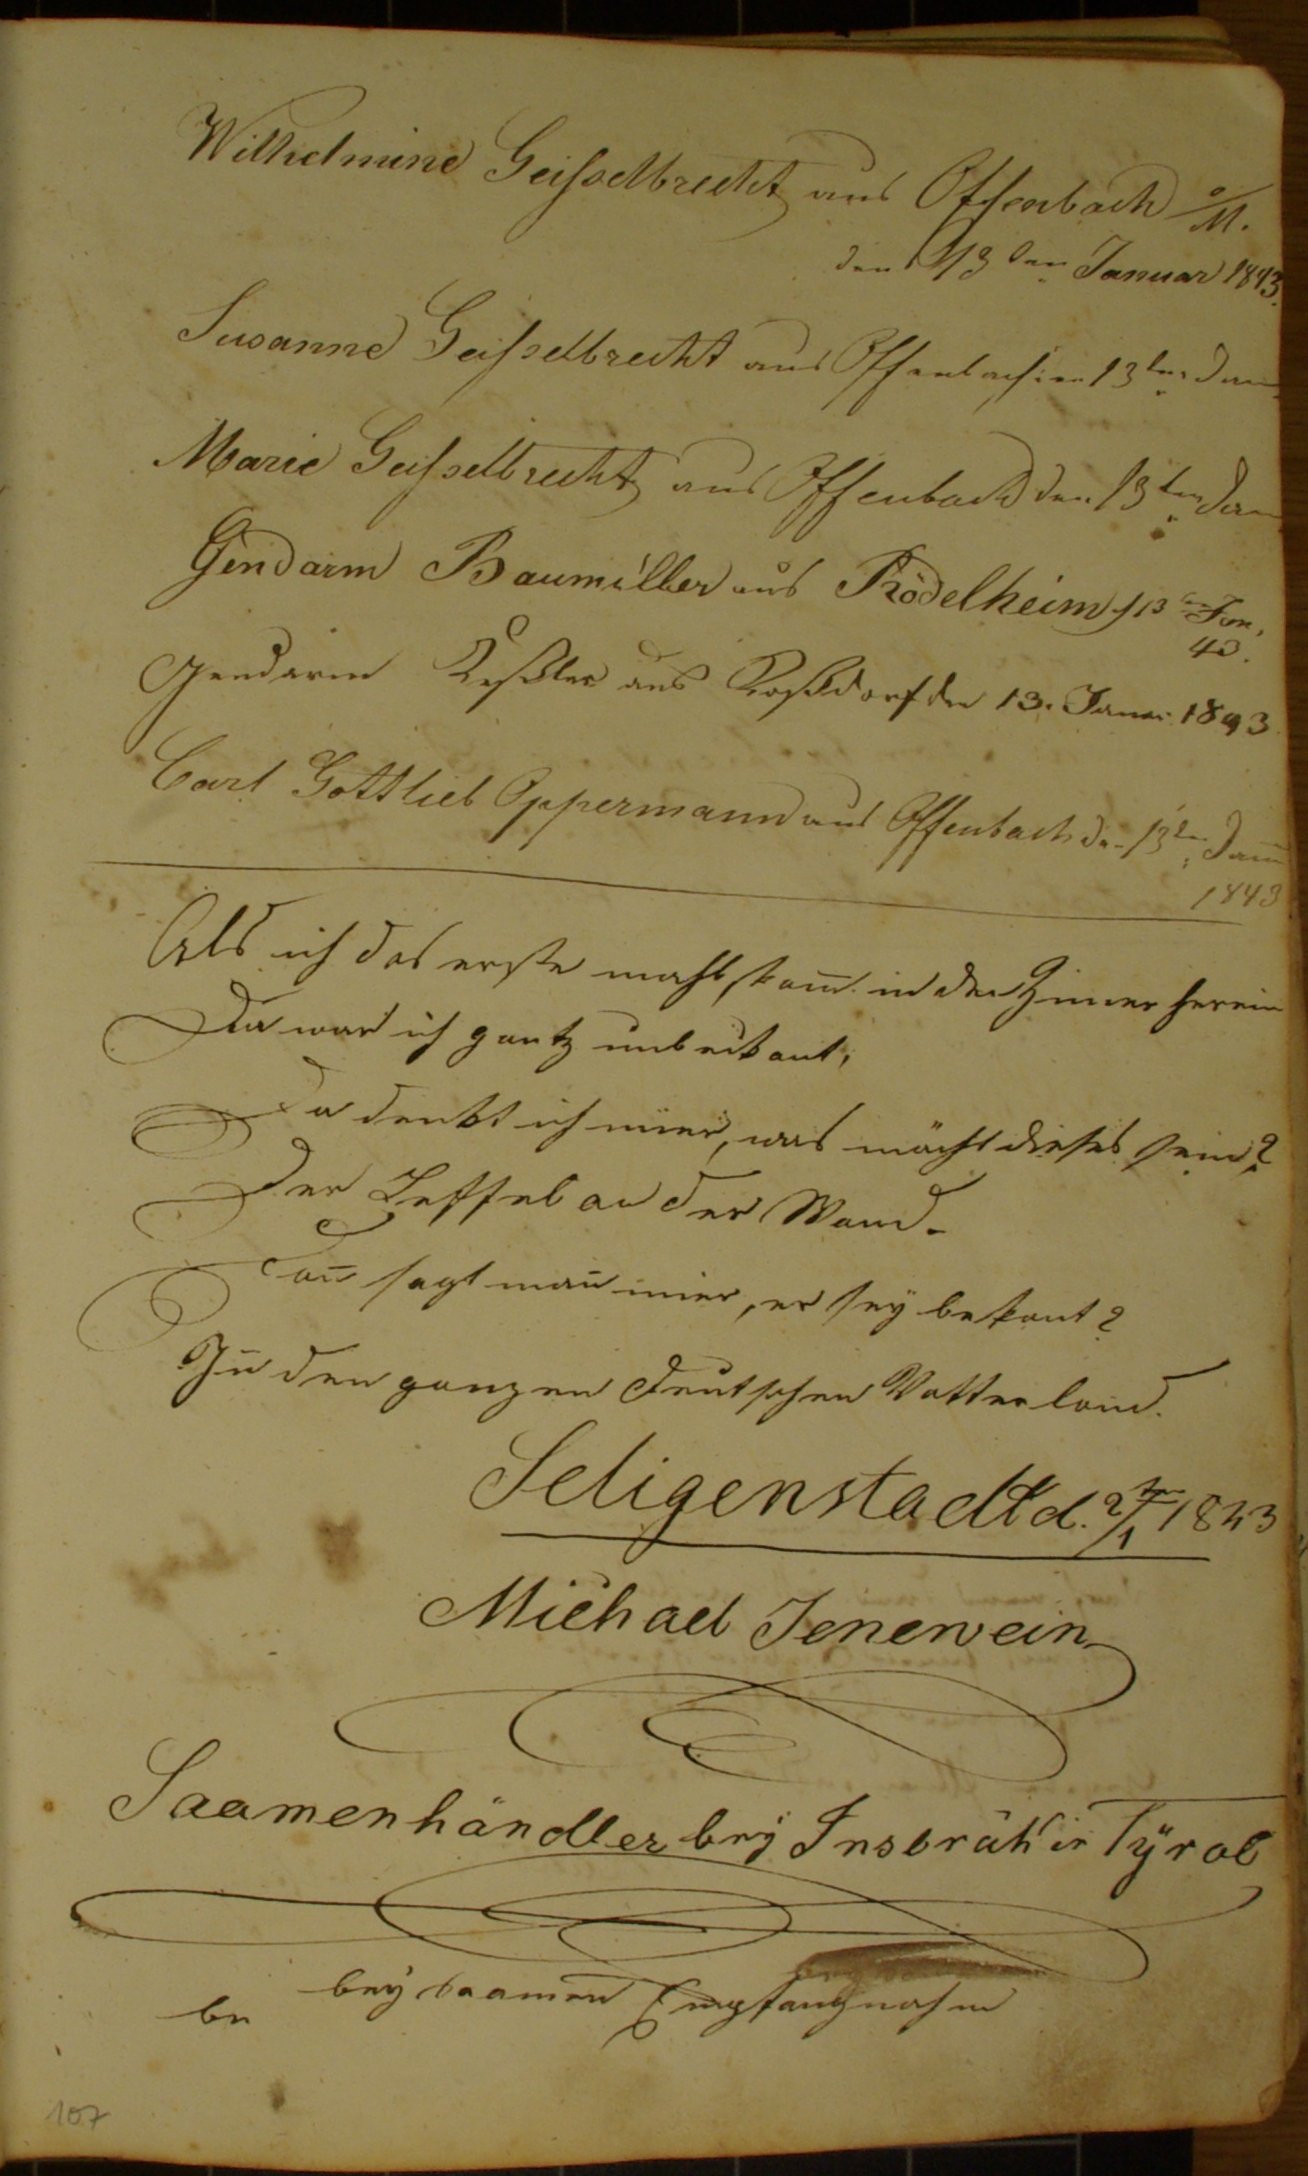 Wilhelmine Geißelbrecht aus Offenbach a/M.
den 13ten Januar 1843.
Susanne Geißelbrecht aus Offenbach den 13ten Jan
Marie Geißelbrecht aus Offenbach den 13ten Jan
Gendarm Baumüller aus Rödelheim 13ten Jan.
43.
Gendarm Keßler aus Roßdorf den 13. Januar 1843
Carl Gottlieb Oppermann aus Offenbach den 13ten Jan
1843
Als ich das erste mahl kam̄ in der Zimer herein
Da war ich gantz unbekant,
Da denkt ich mier, was möcht dieses sein?
Der Leffel an der Wand.
Dan̄ sagt man̄ mier, er sey bekant?
In den ganzen deutschen Vatterland.
Seligenstadt d. 2/1 1843
Michael Jenewein
Saamenhändler bey Insbruk in Tyrol
bey Saamen Empfangnahm
be
107